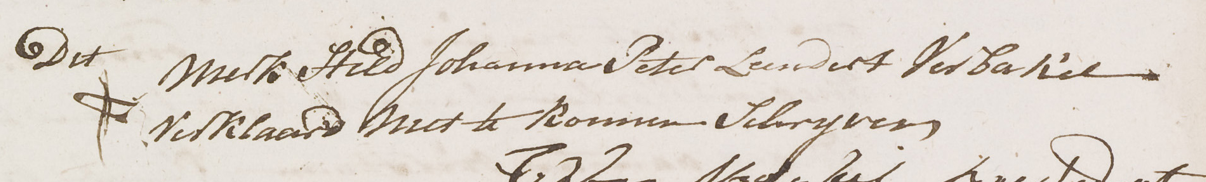 Dit Merk Steld Johanna Peter Leendert Verbakel
Verklaard Niet te konnen Schryven